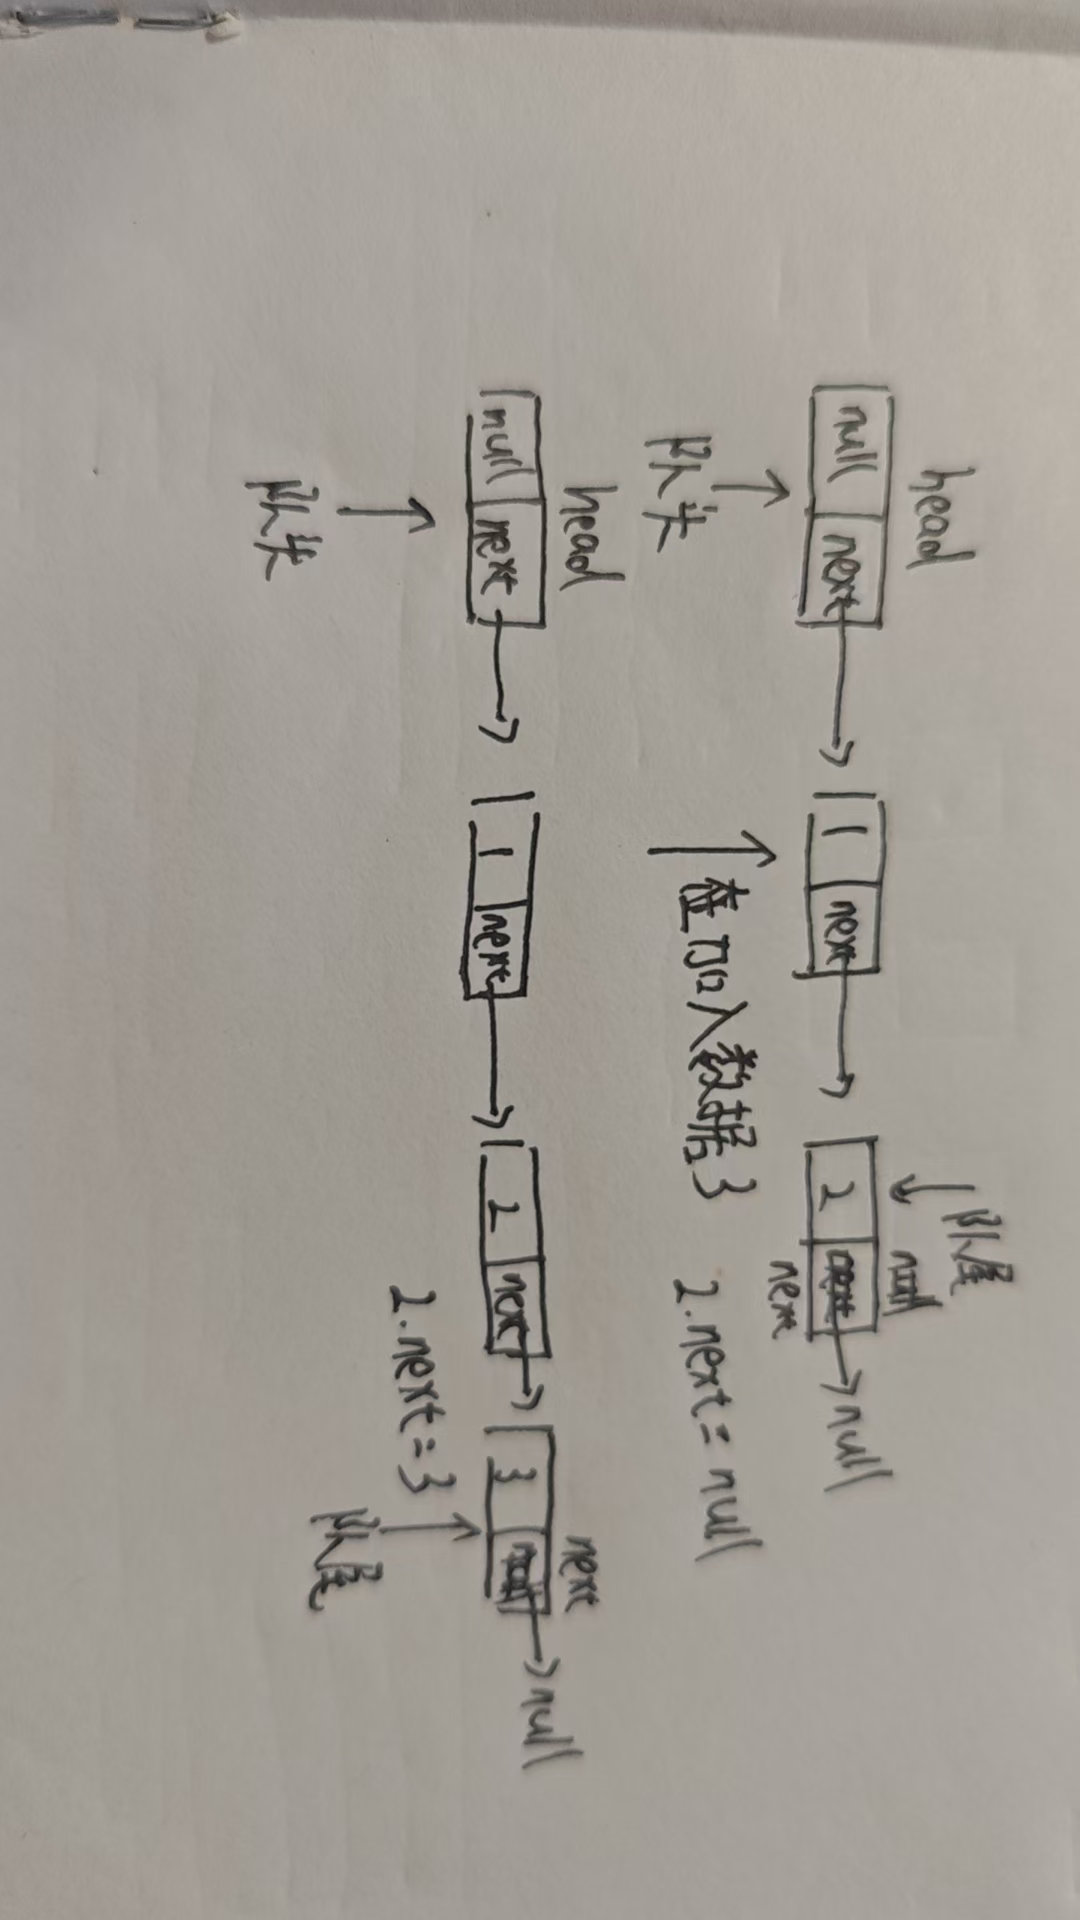 head
队尾
null next
1 next
2
null
next
队头
在加入数据3
2.next = null
head
next
null next
1 next
2 next
3
null
2.next = 3
队头
队尾